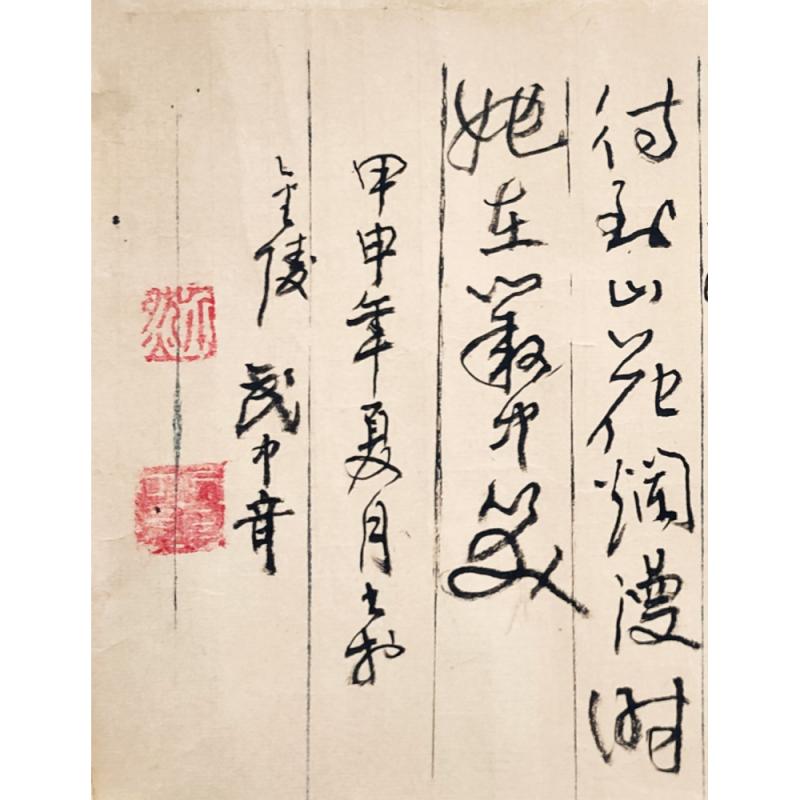 待到山花烂漫时
她在丛中笑
甲申年夏月书于
金陵 武中奇